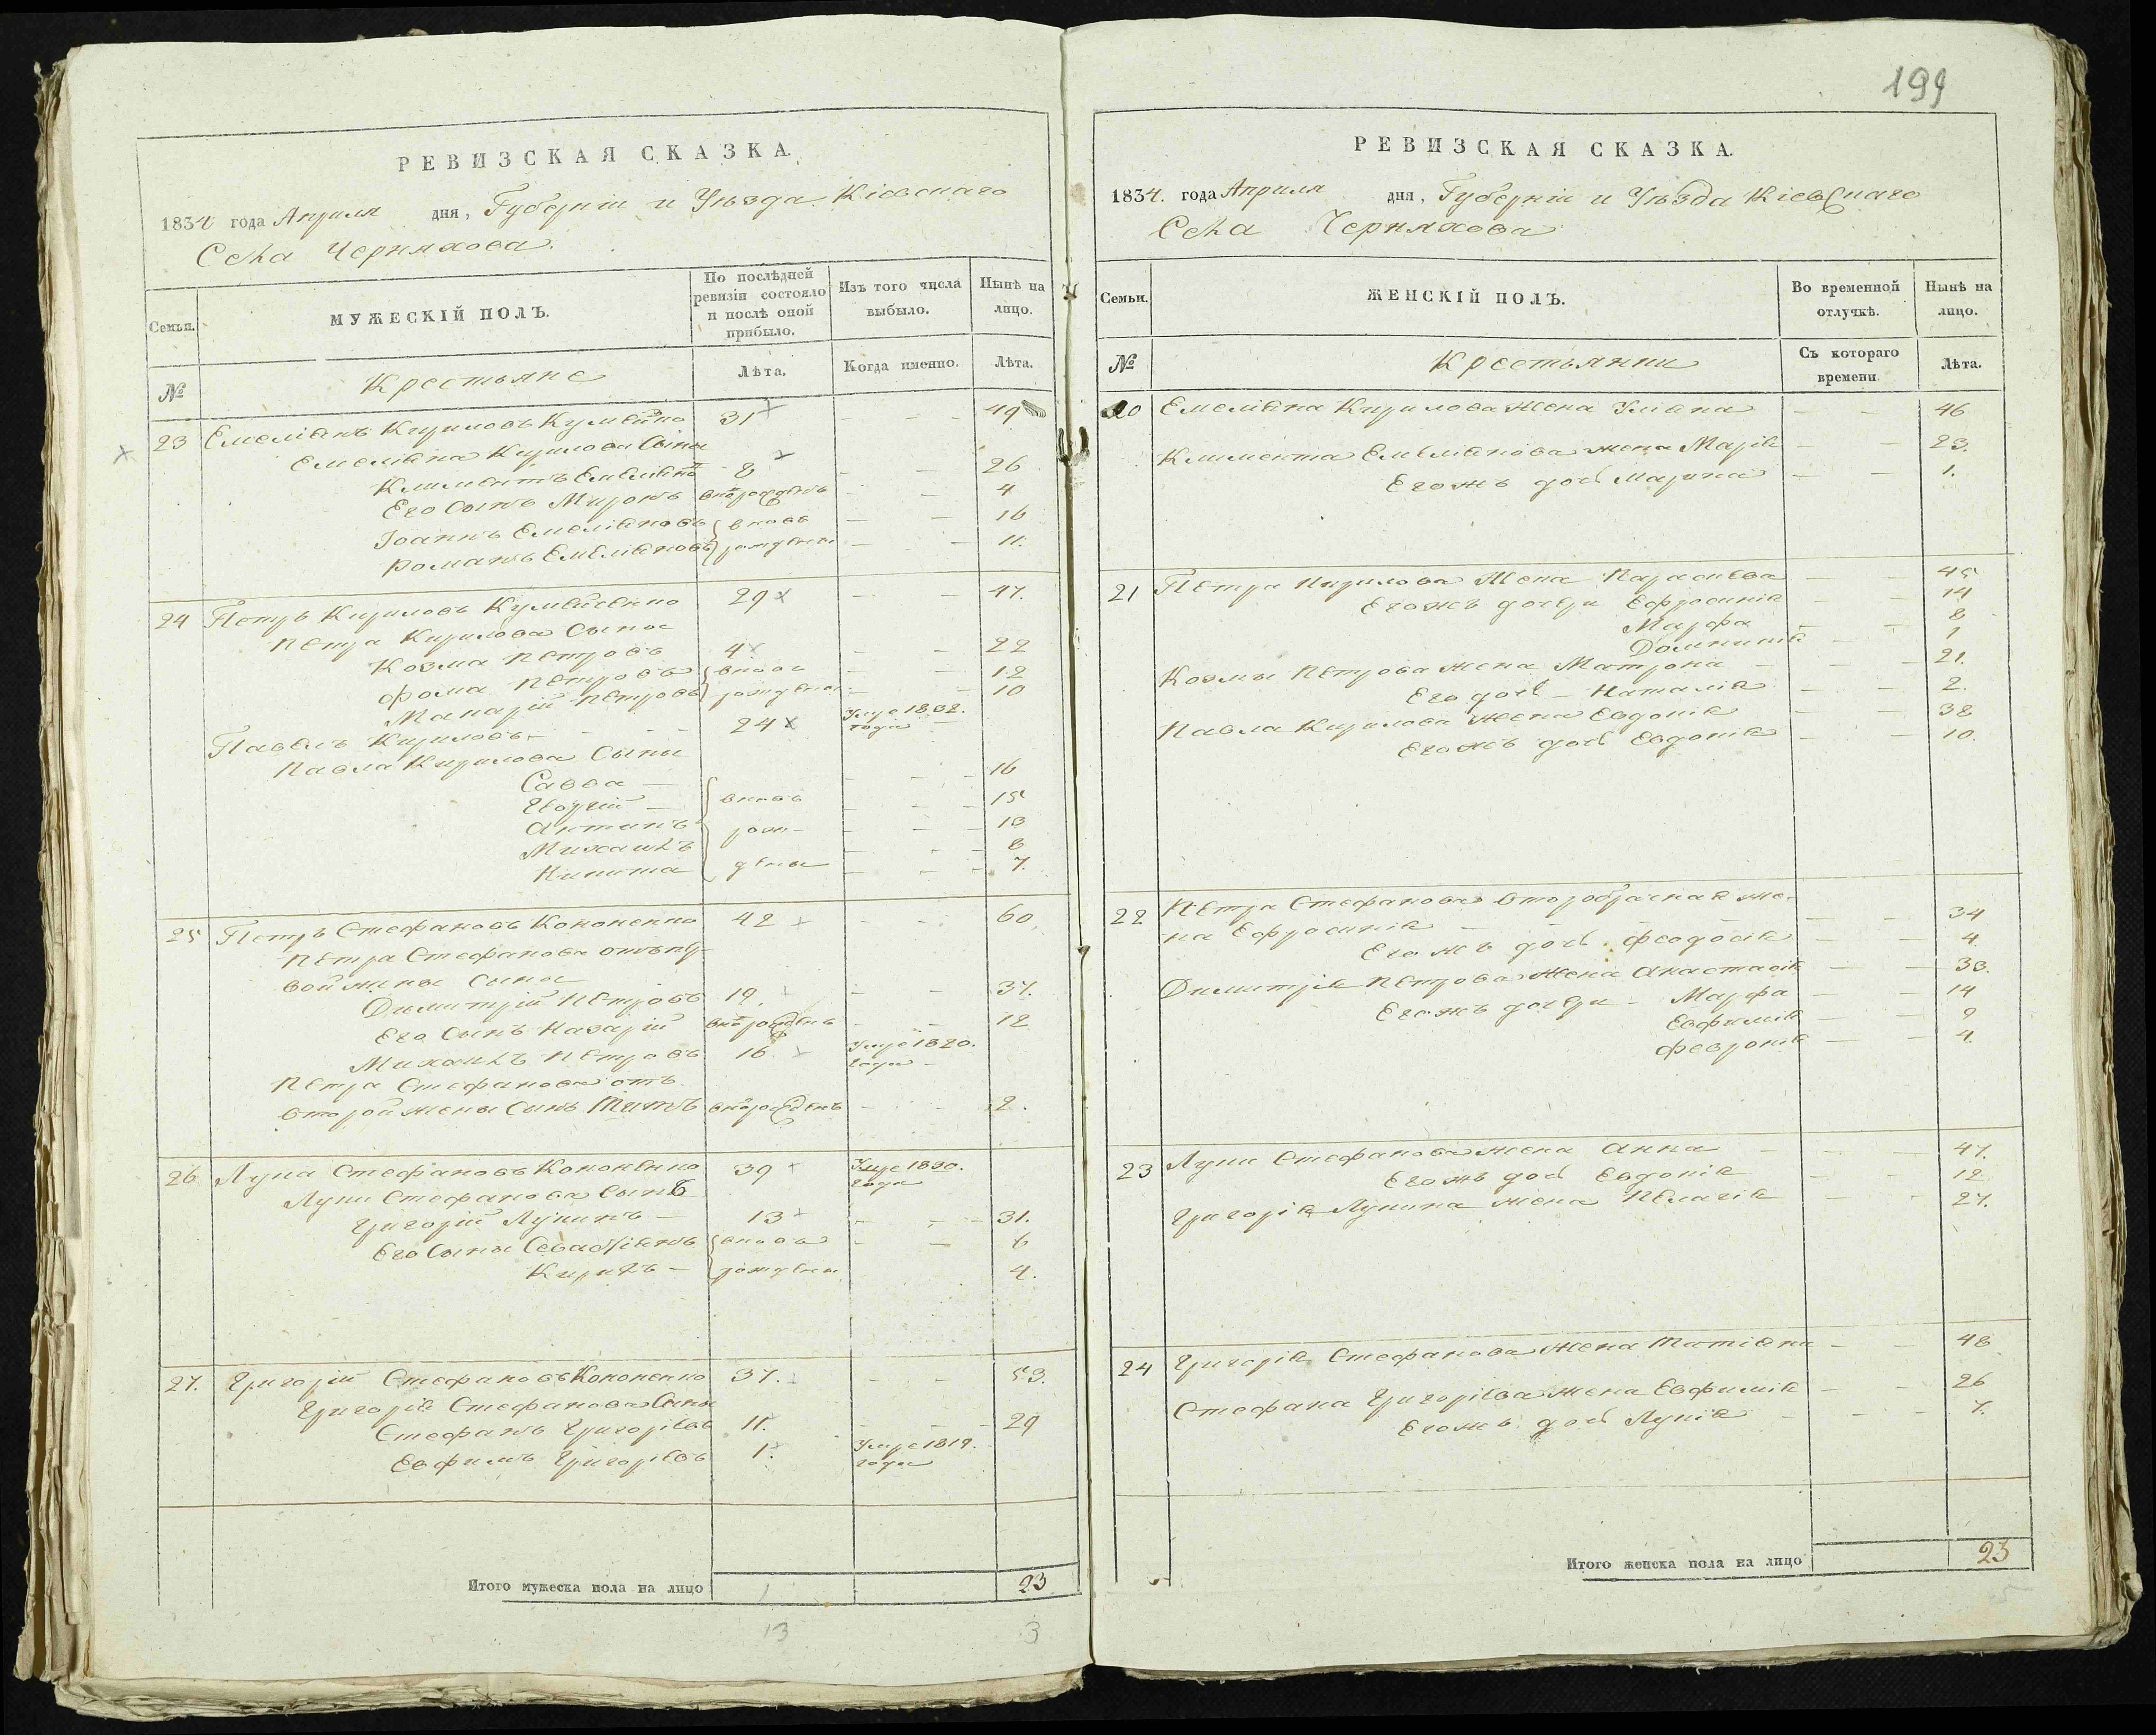 199
РЕВИЗСКАЯ СКАЗКА.
1834 года Апреля дня, Губерніи и Уѣзда Кіевскаго
Села Черняхова.
Семьи. МУЖЕСКІЙ ПОЛЪ. По послѣдней ревизіи состояло и послѣ оной прибыло. Изъ того числа выбыло. Нынѣ на лицо.
№ Крестьяне Лѣта. Когда именно. Лѣта.
23 Емеліянъ Кириловъ 31 49
Емеліяна Кирилова Сыны
Климентъ Емеліяновъ 8 26
Его Сынъ Миронъ вновь рожденъ 4
Іоаннъ Емеліяновъ вновь 16
Романъ Емеліяновъ рождены 11.
24 Петръ Кириловъ 29 47.
Петра Кирилова Сыны
Козма Петровъ 4 22
Фома Петровъ вновь 12
Макарій Петровъ рождены 10
Павелъ Кириловъ 24 Умре 1832. года
Павла Кирилова Сыны
Савва 16
Георгій вновь 15
Антипъ рож- 13
Михаилъ 8
Никита дены 7.
25 Петръ Стефановъ Кононенко 42 60
Петра Стефанова отъ пер-
вой жены Сыны
Димитрій Петровъ 19. 37.
Его Сынъ Назарій вновь рожденъ 12
Михаилъ Петровъ 16 Умре 1820. года
Петра Стефанова отъ
второй жены Сынъ Титъ вновь рожденъ 2.
26 Лупа Стефановъ Кононенко 39 Умре 1830. года
Лупи Стефанова Сынъ
Григорій Лупинъ 13 31.
Его Сыны Севастіянъ вновь 6
Кирилъ рождены 4.
27. Григорій Стефановъ Кононенко 37. 53.
Григорія Стефанова Сыны
Стефанъ Григоріевъ 11. 29
Евфимъ Григоріевъ 1. Умре 1819. года
Итого мужеска пола на лицо 23
13 3
РЕВИЗСКАЯ СКАЗКА.
1834. года Апреля дня, Губерніи и Уѣзда Кіевскаго
Села Черняхова
Семьи. ЖЕНСКІЙ ПОЛЪ. Во временной отлучкѣ. Нынѣ на лицо.
№ Крестьянки Съ котораго времени Лѣта.
20 Емеліяна Кирилова жена Уліяна 46
Климента Емеліянова жена Марія 23.
Его жъ дочь Марина 1.
21 Петра Кирилова Жена Параскева 45
Его жъ дочери Ефросинія 14
Марфа 8
Домникія 1
Козмы Петрова жена Матрона 21.
Его дочь Наталія 2.
Павла Кирилова жена Евдокія 38
Его жъ дочь Евдокія 10.
22 Петра Стефанова второбрачная же-
на Ефросинія 34
Его жъ дочь Феодосія 4.
Димитрія Петрова жена Анастасія 33.
Его жъ дочери Марфа 14
Евфимія 9
Феvронія 4.
23 Лупи Стефанова жена Анна 47.
Его жъ дочь Евдокія 12
Григорія Лупина жена Пелагія 27.
24 Григорія Стефанова жена Татіяна 48
Стефана Григоріева жена Евфимія 26
Его жъ дочь Лукія 7.
Итого женска пола на лицо 23